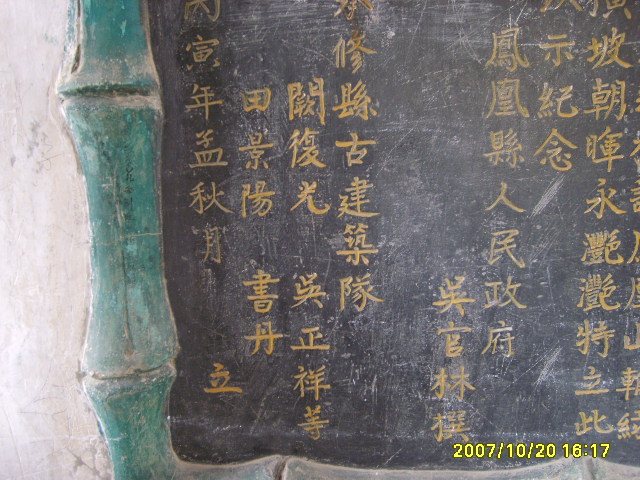 坡朝暉永灔灔特立此
示紀念
鳳凰縣人民政府
吳官林撰
修縣古建築隊
闕復光 吳正祥等
田景陽 書丹
丙寅年孟秋月 立
2007/10/20 16:17